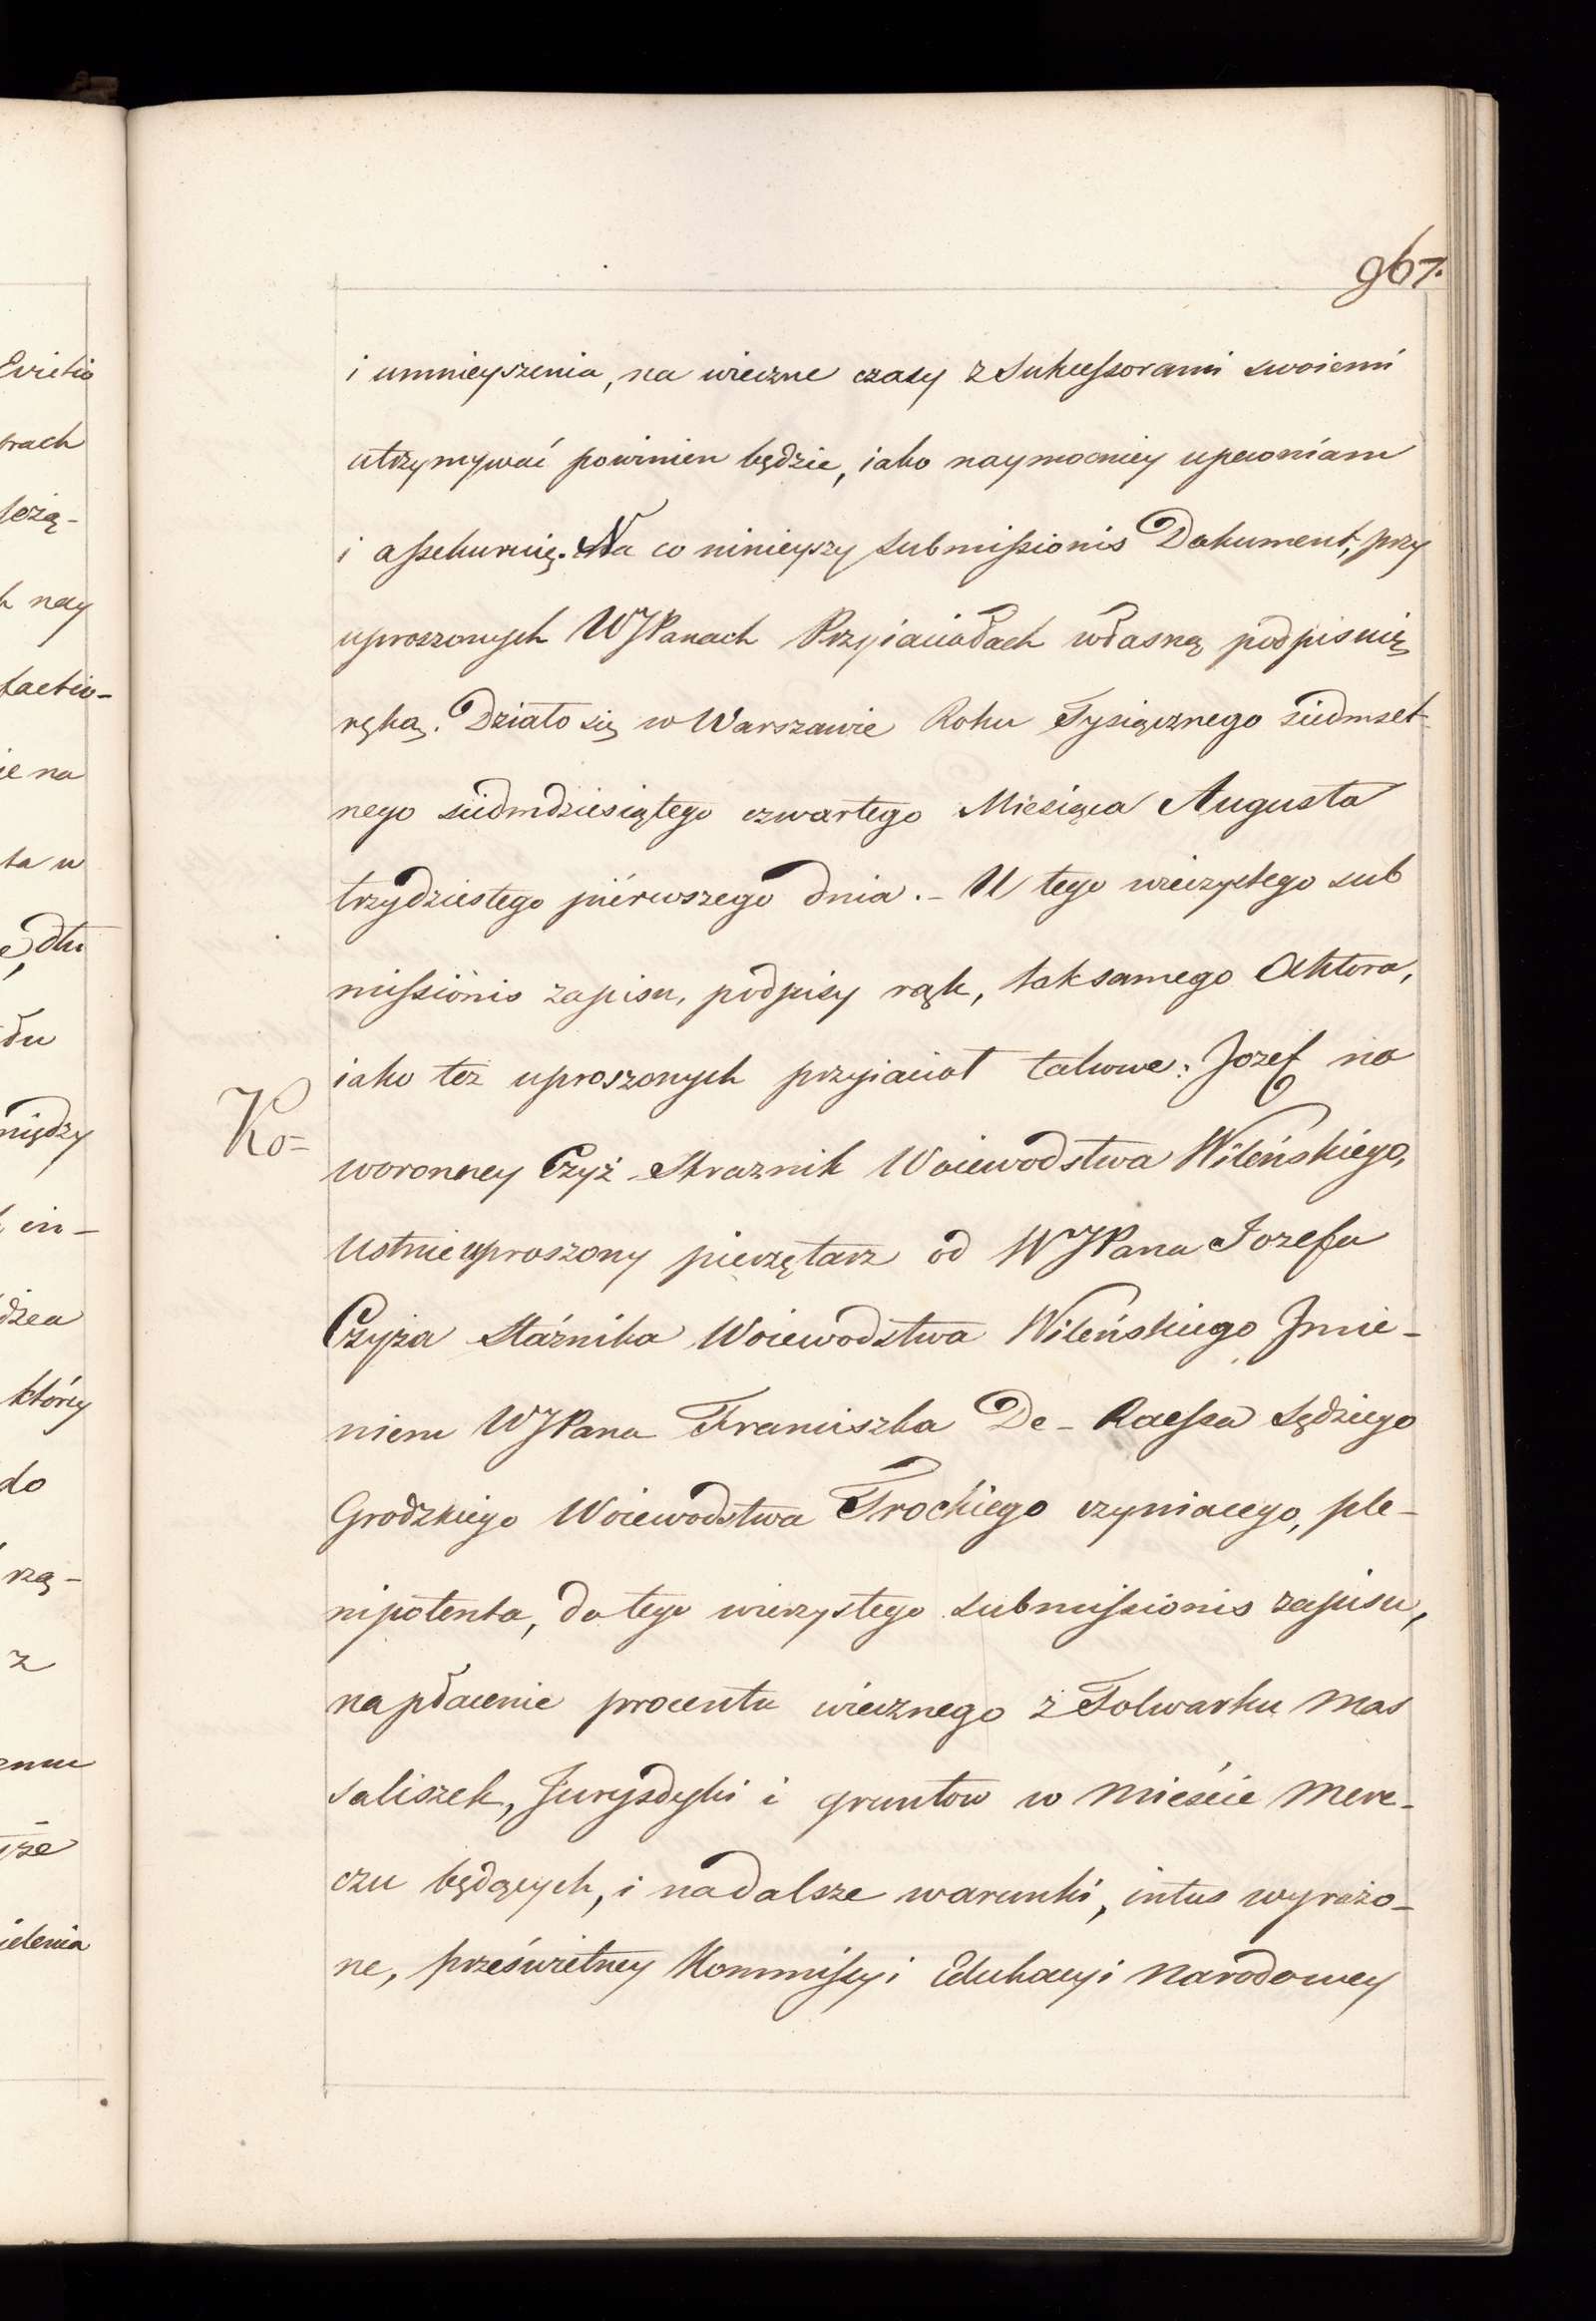 967.
i umnieyszenia, na wieczne czasy z Sukcessorami swoiemi
utrzymywać powinien będzie, iako naymocniey upewniam
i assekuruię. Na co ninieyszy submissionis Dokument, przy
uproszonych WJPanach Przyiaciołach własną podpisuię
ręką. Działo się w Warszawie Roku Tysiącznego siedmset-
nego siedmdziesiątego czwartego Miesiąca Augusta
trzydziestego piérwszego dnia. - U tego wieczystego sub
missionis zapisu, podpisy rąk, tak samego Aktora,
iako też uproszonych przyiacioł takowe: Jozef na
Ko=
woronney Czyż Strażnik Woiewodstwa Wileńskiego,
Ustnie uproszony pieczętarz od WJPana Jozefa
Czyża Stażnika Woiewodztwa Wileńskiego Jmie-
niem WJPana Franciszka De-Raessa Sędziego
Grodzkiego Woiewodstwa Trockiego czyniacego, ple-
nipotenta, do tego wieczystego submissionis zapisu,
na płacenie procentu wiecznego z Folwarku Mas
saliszek, Jurysdyki i gruntow w Mieście Mere-
czu będących, i na dalsze warunki, intus wyrażo-
ne, prześwietney Kommissyi Edukacyi Narodowey
Evictio
orach
leżą-
h nay
factio-
ie na
ta u
dłu
między
in-
który
do
z
ielenia